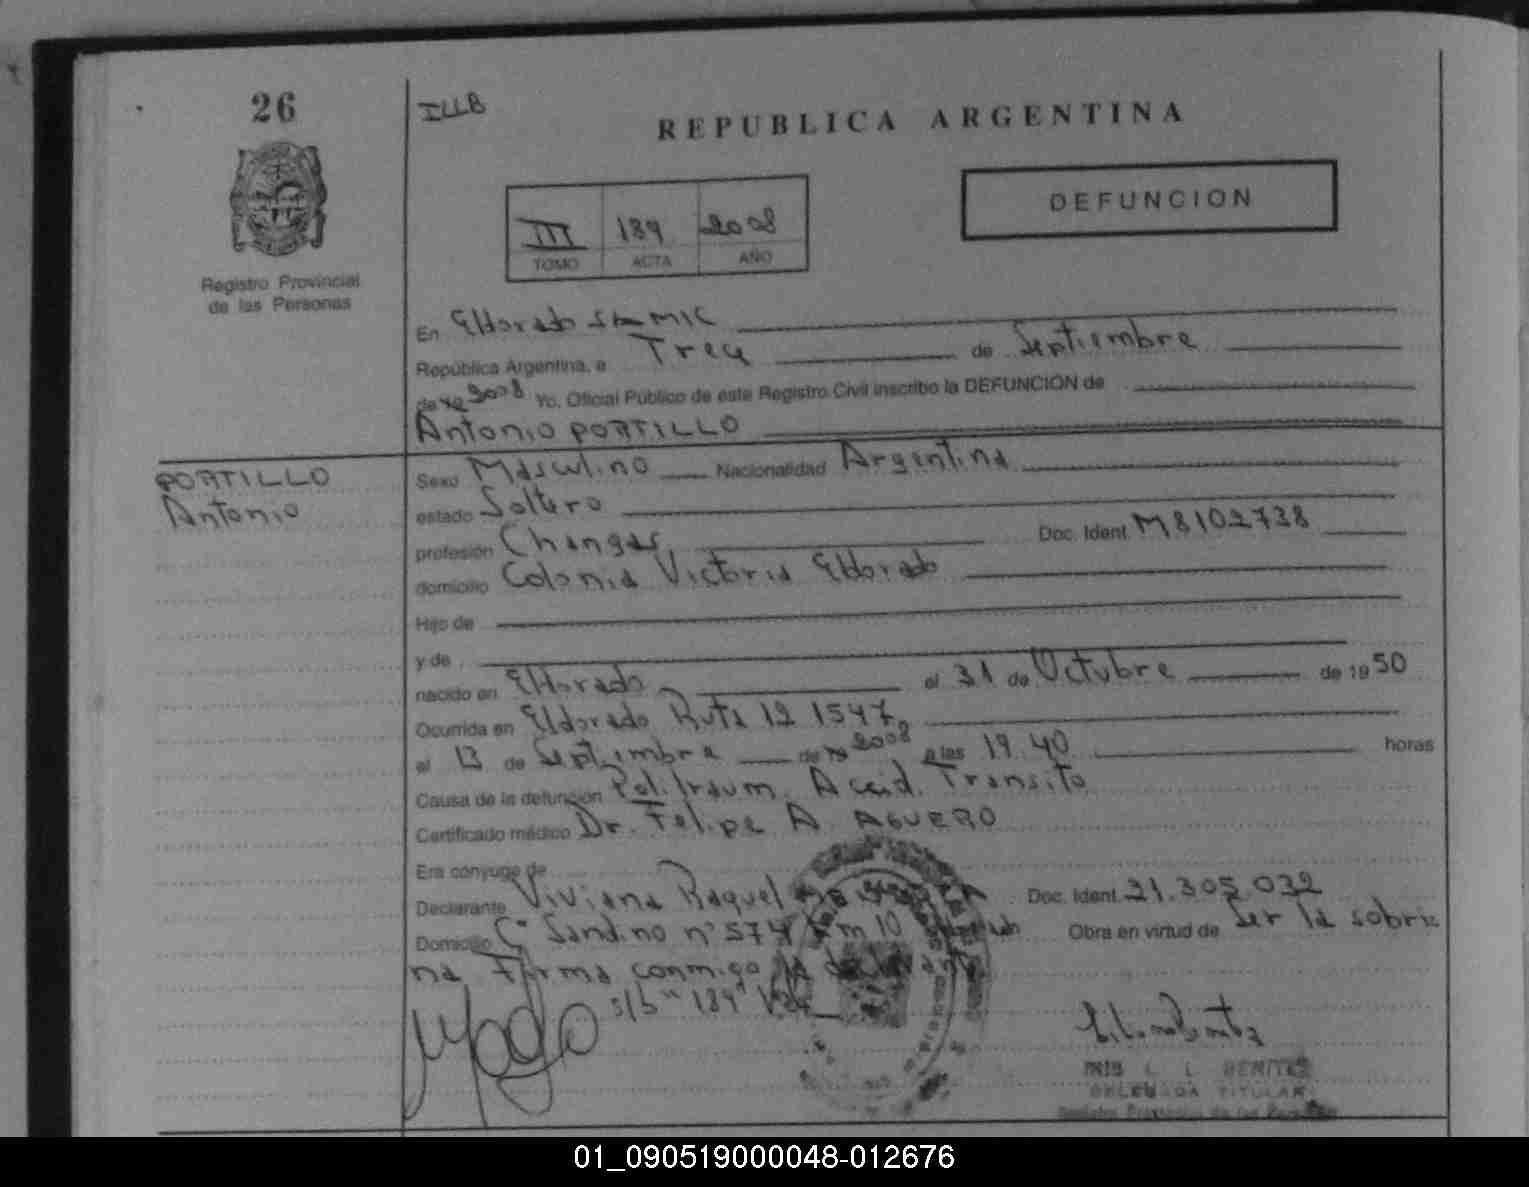 26
ILLB
REPUBLICA ARGENTINA
DEFUNCION
III 189 2008
TOMO ACTA AÑO
Registro Provincial
de las Personas
En Eldorado MIC
República Argentina, a Trece de Septiembre
de 19 2008 Yo, Oficial Público de este Registro Civil inscribo la DEFUNCION de
Antonio PORTILLO
PORTILLO
Antonio
Sexo Masculino Nacionalidad Argentina
estado Soltero
profesión Changas Doc. Ident. M8102738
domicilio Colonia Victoria Eldorado
Hijo de
y de
nacido en Eldorado el 31 de Octubre de 1950
Ocurrida en Eldorado Ruta 12 1547
el 13 de Septiembre de 19 2008 a las 19.40 horas
Causa de la defunción Politraum. Accid. Transito
Certificado médico Dr. Felipe A. AGUERO
Era cónyuge de
Declarante Viviana Raquel Doc. Ident. 21.305.032
Domicilio Cº Sandino nº 574 Km 10 Obra en virtud de ser la sobri
na Firma conmigo la
s/b "189" Vale
IRIS L. L. BENITEZ
DELEGADA TITULAR
Registro Provincial de las Personas
01_090519000048-012676